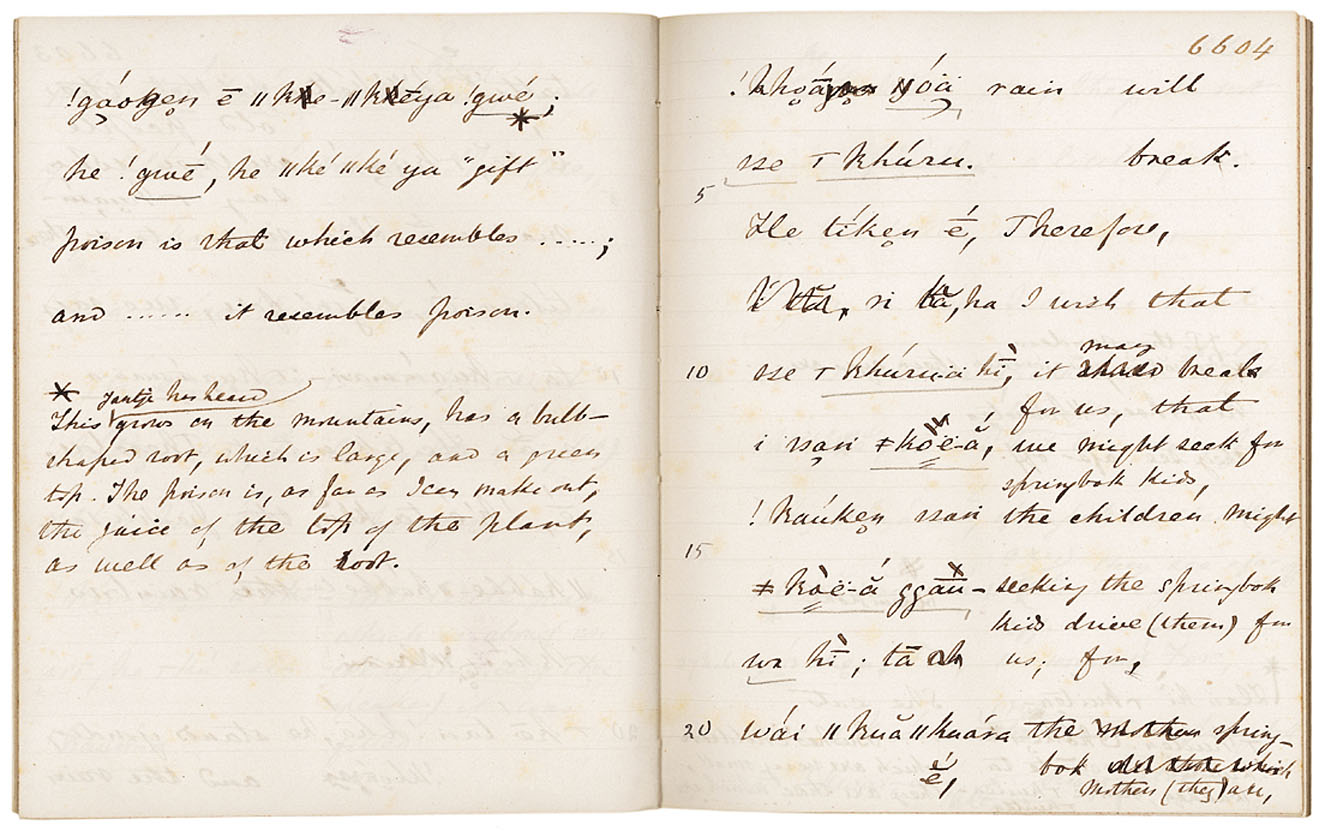 !gáoken ē ǁkhe-ǁkhéya !gwé;
he !gwé, he ǁké ǁké ya "gift"
poison is that which resembles ......;
and ...... it resembles poison.
Jantje has heard
This grows on the mountains, has a bulb-
shaped root, which is large, and a green
top. The poison is, as far as I can make out,
the juice of the top of the plant,
as well as of the root.
6604
rain will
sse ⊤khúru. break.
5
He tíken ē, Therefore,
ha I wish that
may
10 sse ⊤khúruä hī, it break
for us, that
i ssan ǂkoë-ă, we might seek for
springbok kids,
!kaúken ssan the children might
15
ǂkoë-ă ggaū- seeking the springbok
kids drive (them) for
wa hī; tā us; for,
20 wái ǁkuă ǁkuára the spring-
é, bok
Mothers (they) are,